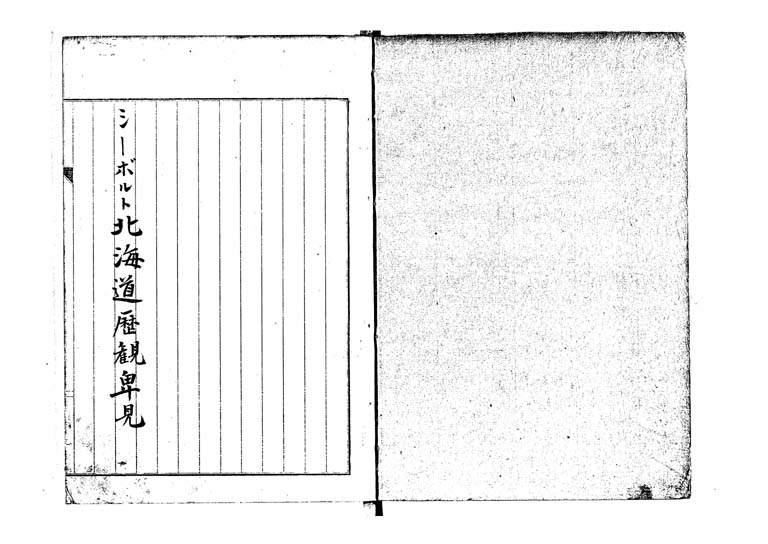 シーボルト北海道歴観卑見